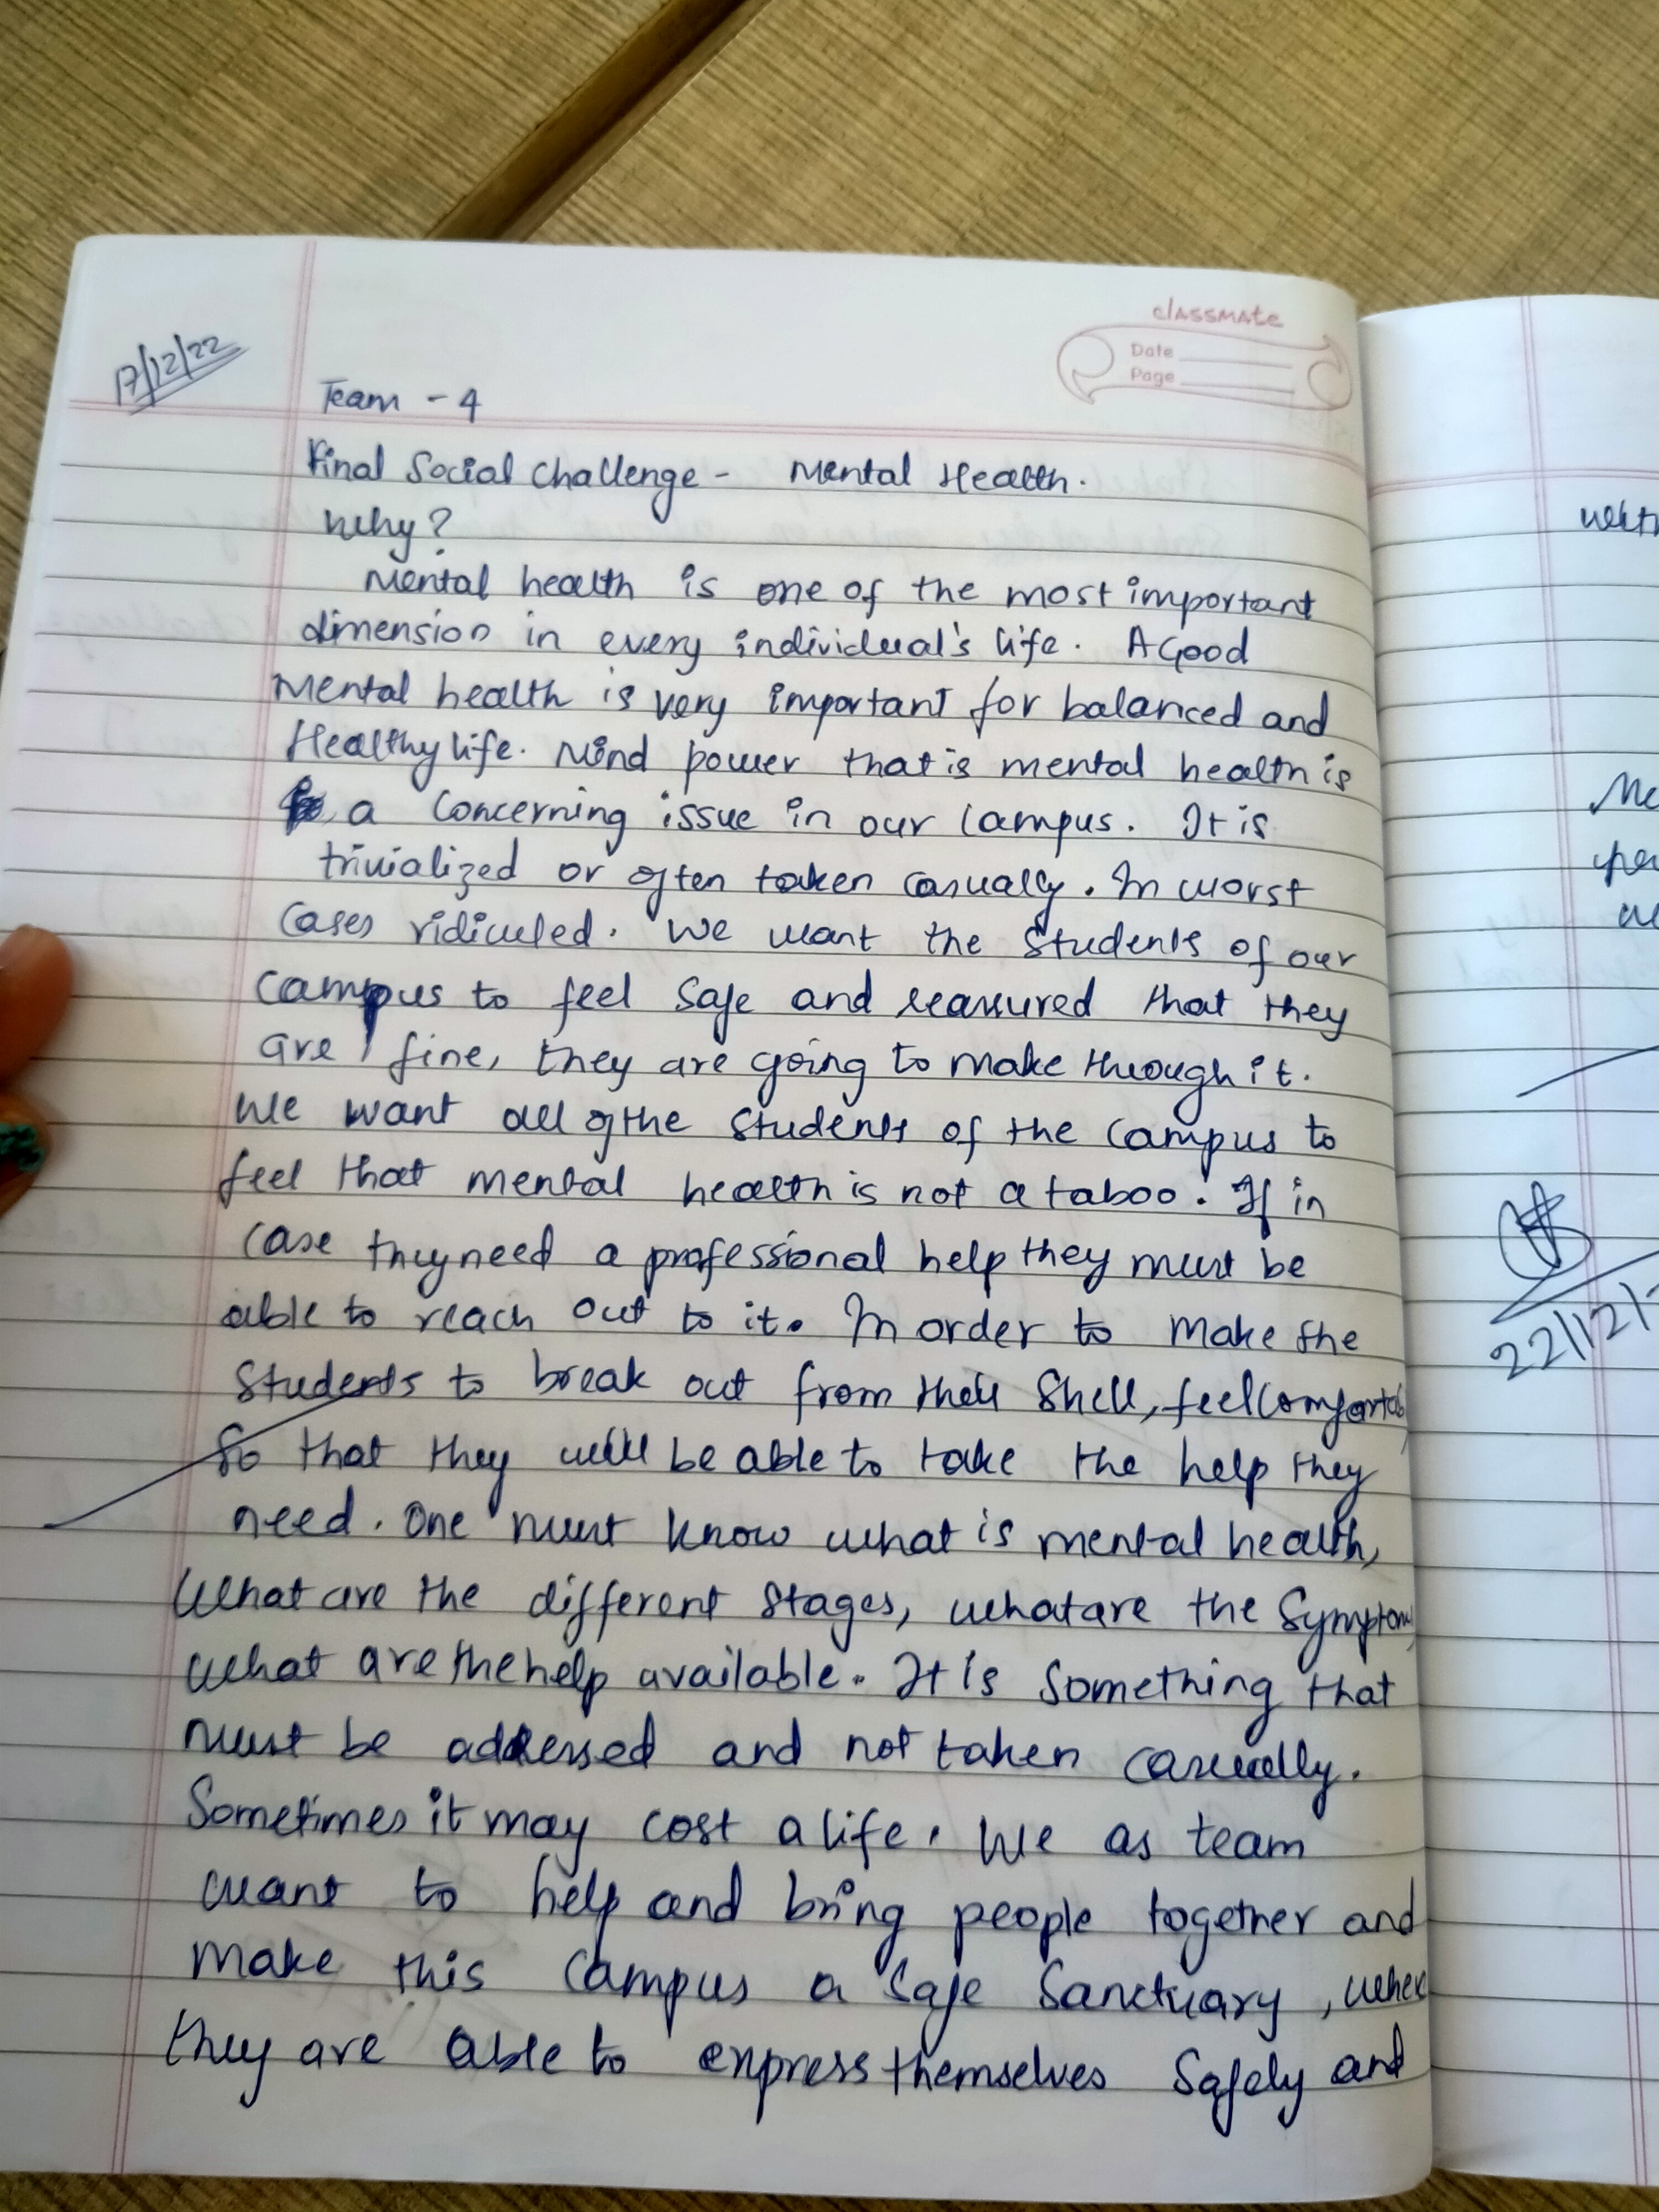 classmate
Date
Page
17/12/22
Team - 4
Final Social Challenge - Mental Health.
Why?
Mental health is one of the most important
dimension in every individual's life. A Good
Mental health is very important for balanced and
Healthy life. Mind power that is mental health is
a concerning issue in our campus. It is
trivialized or often taken casually. In worst
cases ridiculed. We want the students of our
campus to feel safe and reassured that they
are fine, they are going to make through it.
We want all of the students of the campus to
feel that mental health is not a taboo. If in
case they need a professional help they must be
able to reach out to it. In order to make the
students to break out from their shell, feel
So that they will be able to take the help they
need. One must know what is mental health,
What are the different stages, what are the
what are the help available. It is something that
must be addressed and not taken casually.
Sometimes it may cost a life. We as team
want to help and bring people together and
make this campus a safe sanctuary,
they are able to express themselves safely and
22/12/